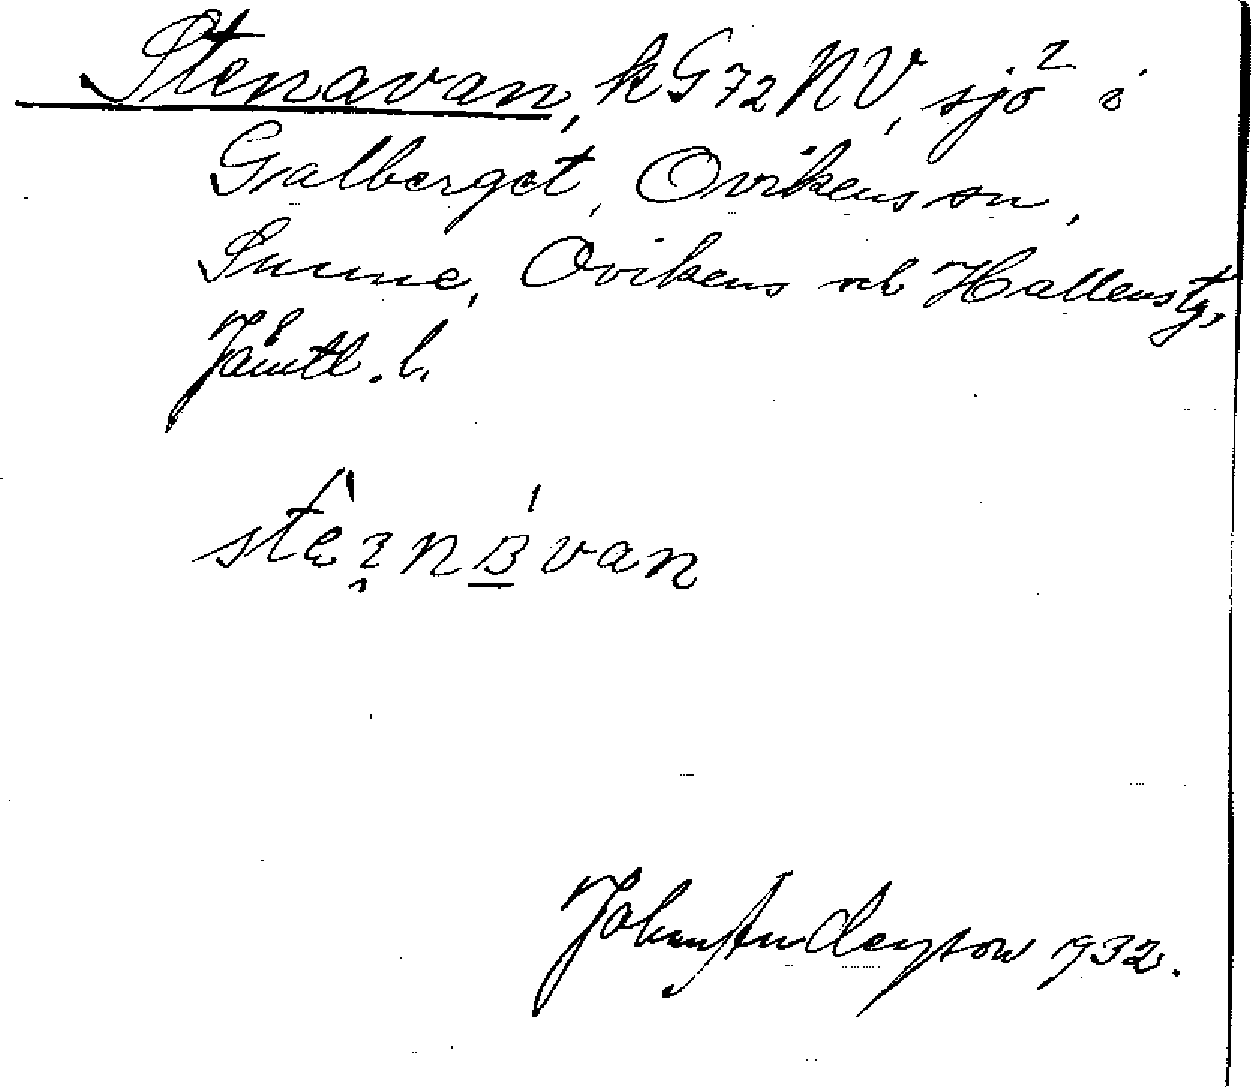 Stenavan, k G72NV, sjö i
Galberget, Ovikens sn,
Sunne, Ovikens och Hallens tg,
Jämtl. l.
Johan Anderson 1932.